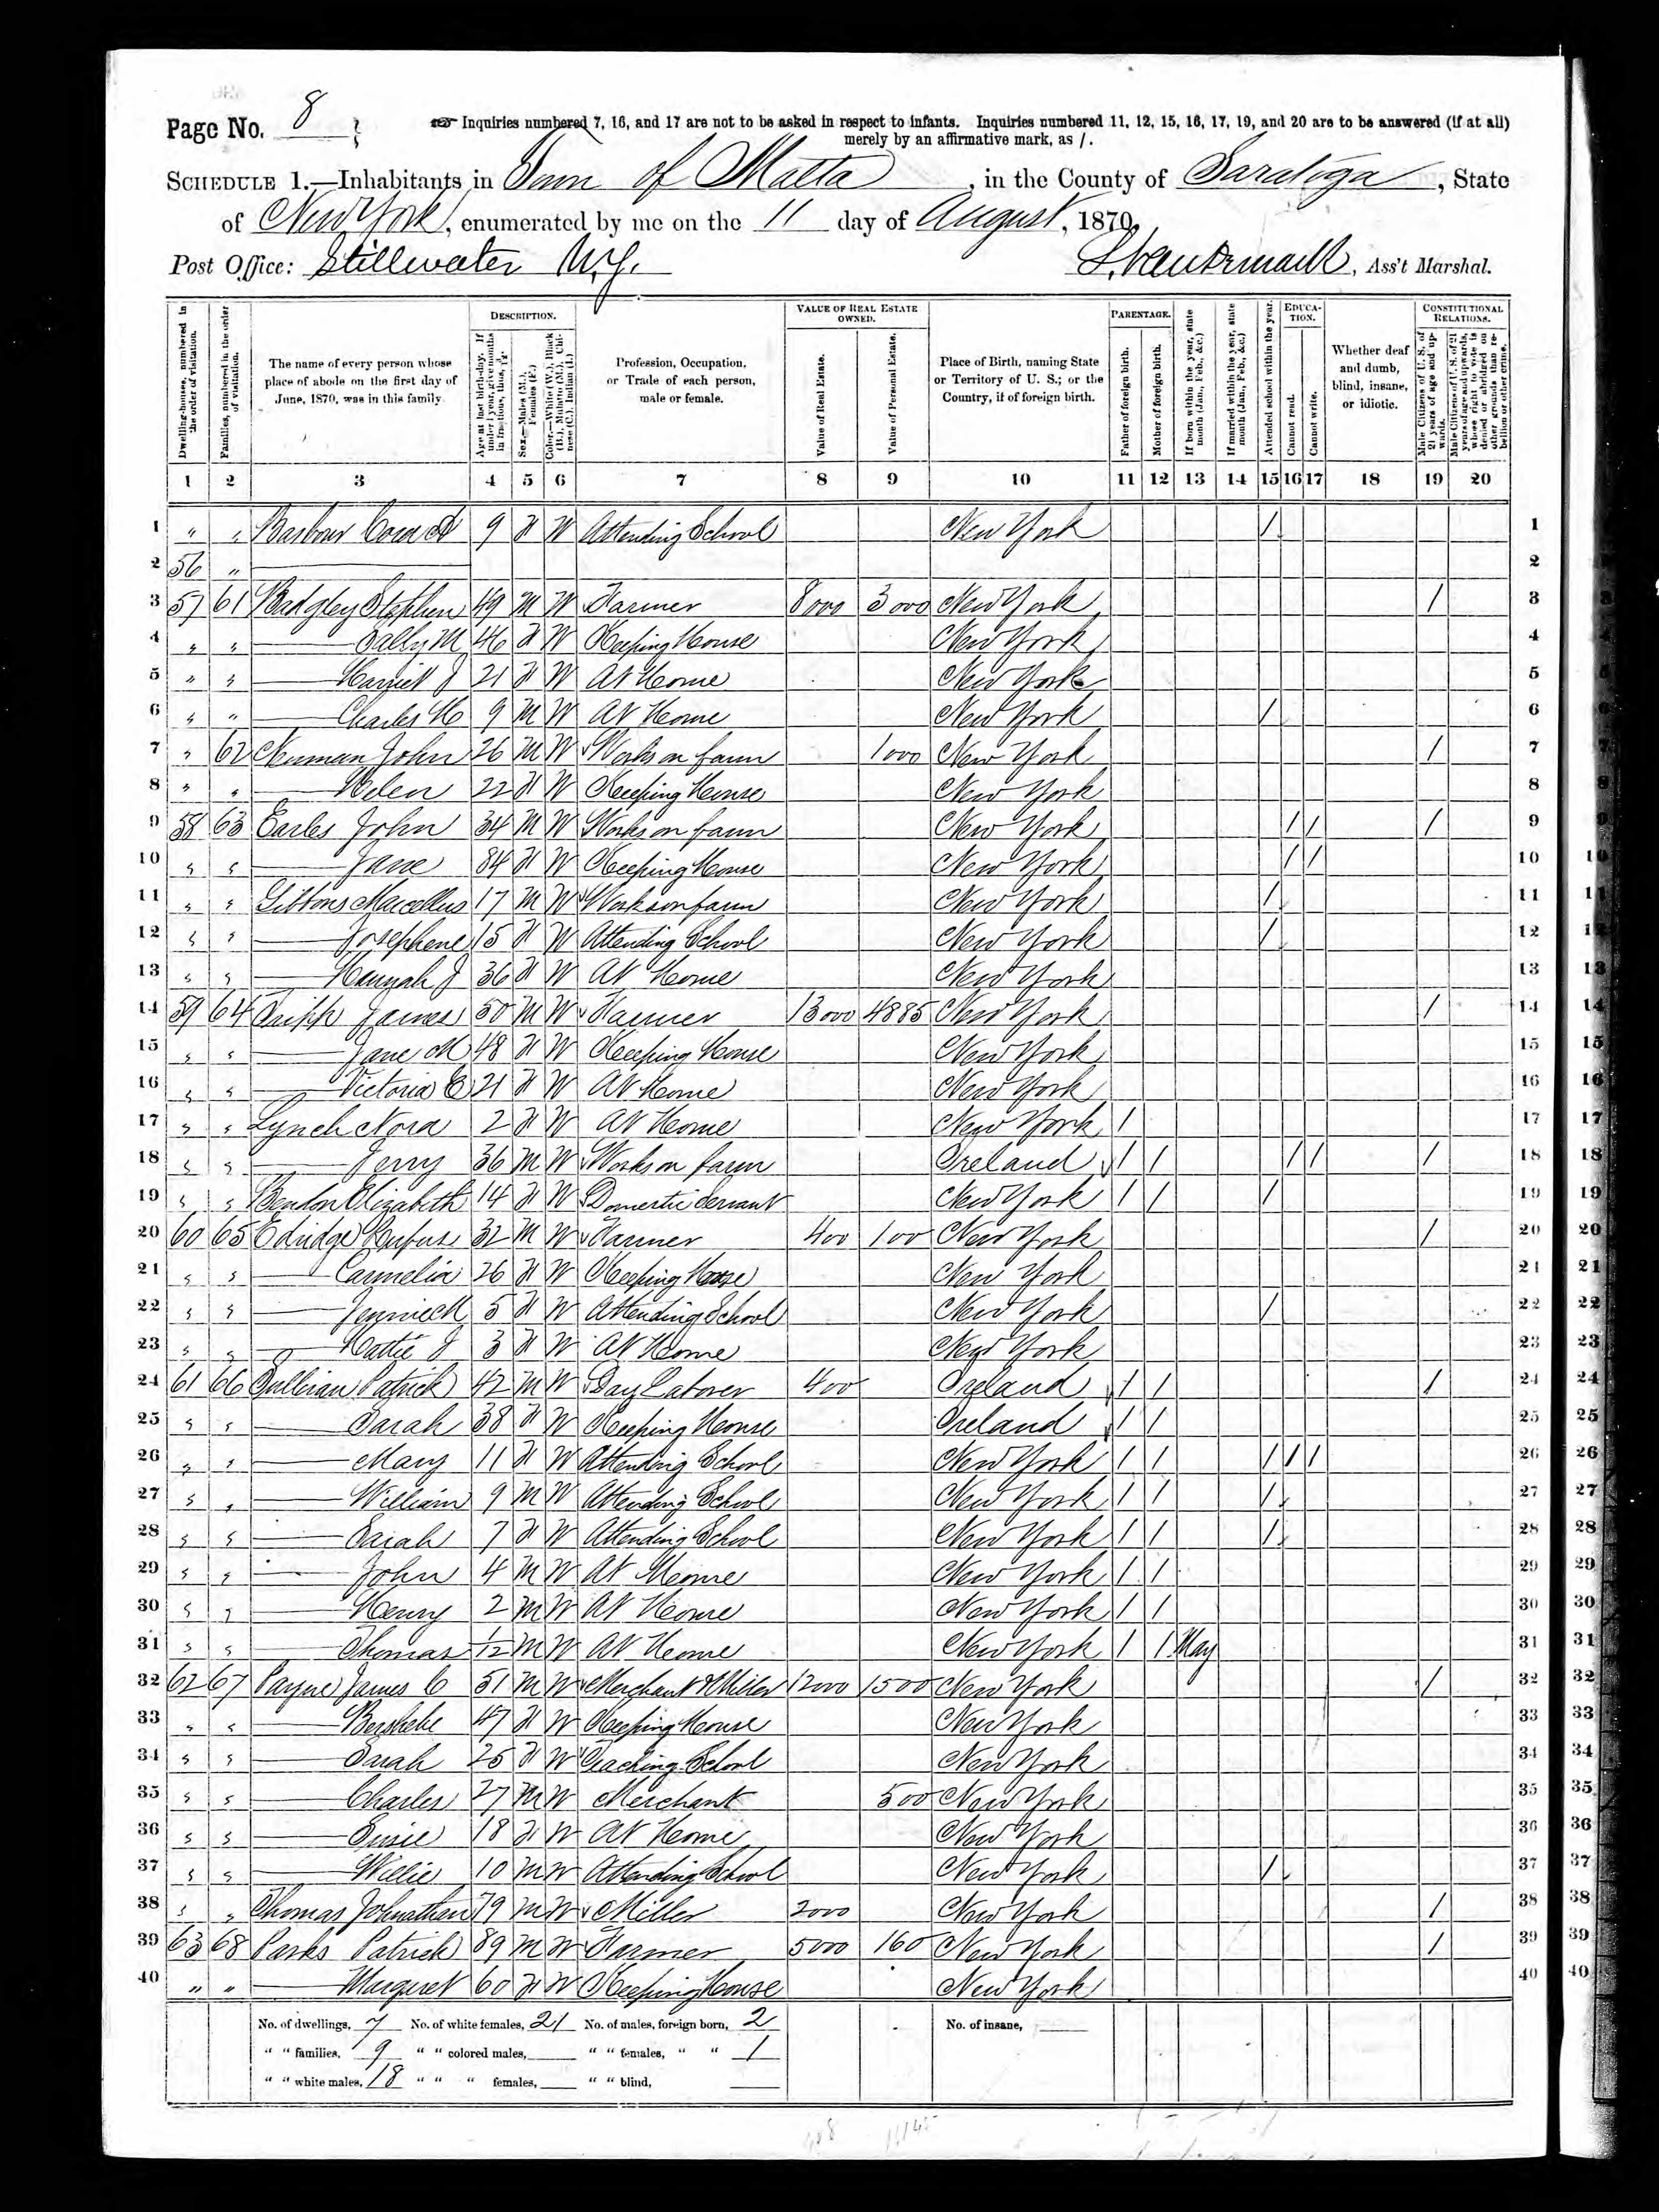 Page No. 8
Inquiries numbered 7, 16, and 17 are not to be asked in respect to infants. Inquiries numbered 11, 12, 15, 16, 17, 19, and 20 are to be answered (if at all)
merely by an affirmative mark, as /.
SCHEDULE 1.—Inhabitants in Town of Malta, in the County of Saratoga, State
of New York, enumerated by me on the 11 day of August, 1870.
Post Office: Stillwater N.Y. , Ass't Marshal.
Dwelling-houses, numbered in the order of visitation.
Families, numbered in the order of visitation.
The name of every person whose place of abode on the first day of June, 1870, was in this family.
DESCRIPTION.
Age at last birth-day. If under 1 year, give months in fractions, thus, 3/12.
Sex.—Males (M.), Females (F.)
Color.—White (W.), Black (B.), Mulatto (M.), Chinese (C.), Indian (I.)
Profession, Occupation, or Trade of each person, male or female.
VALUE OF REAL ESTATE OWNED.
Value of Real Estate.
Value of Personal Estate.
Place of Birth, naming State or Territory of U. S.; or the Country, if of foreign birth.
PARENTAGE.
Father of foreign birth.
Mother of foreign birth.
If born within the year, state month (Jan., Feb., &c.)
If married within the year, state month (Jan., Feb., &c.)
Attended school within the year.
EDUCATION.
Cannot read.
Cannot write.
Whether deaf and dumb, blind, insane, or idiotic.
CONSTITUTIONAL RELATIONS.
Male Citizens of U. S. of 21 years of age and upwards.
Male Citizens of U. S. of 21 years of age and upwards, whose right to vote is denied or abridged on other grounds than rebellion or other crime.
1 2 3 4 5 6 7 8 9 10 11 12 13 14 15 16 17 18 19 20
1 " " Barbour Cora A 9 F W Attending School New York / 1
2 56 " 2
3 57 61 Badgley Stephen 49 M W Farmer 8000 3000 New York / 3
4 " " Sally M 46 F W Keeping House New York 4
5 " " Harriet J 21 F W At Home New York 5
6 " " Charles H 9 M W At Home New York / 6
7 " 62 Neuman John 26 M W Works on farm 1000 New York / 7
8 " " Helen 22 F W Keeping House New York 8
9 58 63 Earles John 34 M W Works on farm New York / / / 9
10 " " Jane 84 F W Keeping House New York / / 10
11 " " Gibbons Marcellus 17 M W Works on farm New York / 11
12 " " Josephene 15 F W Attending School New York / 12
13 " " Hannah J 36 F W At Home New York 13
14 59 64 Tripp James 50 M W Farmer 13000 4885 New York / 14
15 " " Jane M 48 F W Keeping House New York 15
16 " " Victoria E 21 F W At Home New York 16
17 " " Lynch Nora 2 F W At Home New York / 17
18 " " Jerry 36 M W Works on farm Ireland / / / / / 18
19 " " Elizabeth 14 F W Domestic Servant New York / / / 19
20 60 65 Edridge Rufus 32 M W Farmer 400 100 New York / 20
21 " " Carmelia 26 F W Keeping House New York 21
22 " " Jennie M 5 F W Attending School New York / 22
23 " " Hattie J 3 F W At Home New York 23
24 61 66 Sullivan Patrick 42 M W Day Laborer 400 Ireland / / / 24
25 " " Sarah 38 F W Keeping House Ireland / / 25
26 " " Mary 11 F W Attending School New York / / / / / 26
27 " " William 9 M W Attending School New York / / / 27
28 " " Sarah 7 F W Attending School New York / / / 28
29 " " John 4 M W At Home New York / / 29
30 " " Henry 2 M W At Home New York / / 30
31 " " Thomas 1/12 M W At Home New York / / May 31
32 62 67 Payne James C 51 M W Merchant & Miller 12000 1500 New York / 32
33 " " 47 F W Keeping House New York 33
34 " " Sarah 25 F W Teaching School New York 34
35 " " Charles 27 M W Merchant 500 New York 35
36 " " Susie 18 F W At Home New York 36
37 " " Willie 10 M W Attending School New York / 37
38 " " Thomas Johnathan 79 M W Miller 2000 New York / 38
39 63 68 Parks Patrick 89 M W Farmer 5000 160 New York / 39
40 " " Margaret 60 F W Keeping House New York 40
No. of dwellings, 7 No. of white females, 21 No. of males, foreign born, 2 No. of insane,
" " families, 9 " " colored males, " " females, " " 1
" " white males, 18 " " " females, " " blind,